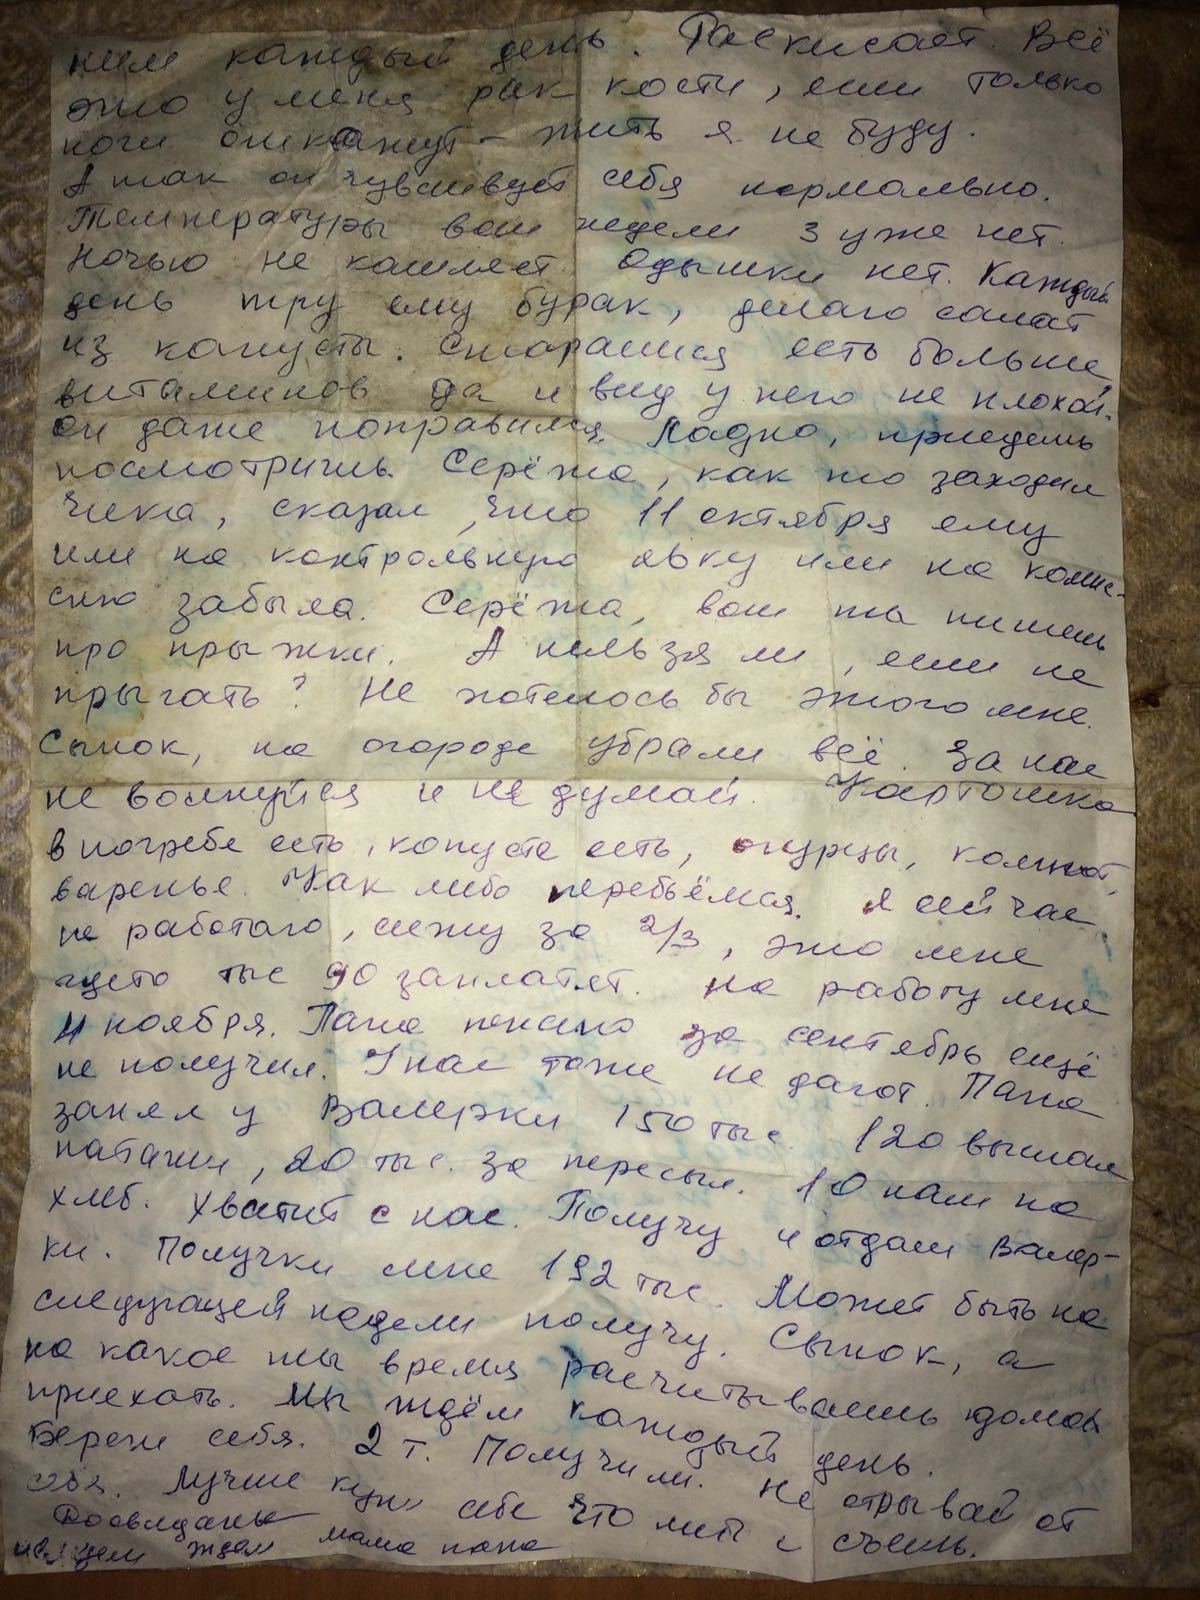 ним каждый день. Раскисает. Всё
это у меня рак кости, если только
ноги откажут - жить я не буду.
А так он чувствует себя нормально.
Температуры вот недели 3 уже нет.
Ночью не кашляет. Одышки нет. Каждый
день тру ему бурак, делаю салат
из капусты. Стараемся есть больше
витаминов да и вид у него не плохой.
он даже поправился. Ладно, приедешь
посмотришь. Серёжа, как то заходил
Чика, сказал, что 11 октября ему
или на контрольную явку или на комис-
сию забыла. Серёжа, вот ты пишешь
про прыжки. А нельзя ли, если не
прыгать? Не хотелось бы этого мне.
Сынок, на огороде убрали всё. За нас
не волнуйся и не думай. Картошка
в погребе есть, капуста есть, огурцы, компот,
варенье. Как либо перебьёмся. Я сейчас
не работаю, сижу за 2/3, это мне
гдето тыс 90 заплатят. На работу мне
4 ноября. Папа пенсию за сентябрь ещё
не получил. У нас тоже не дают. Папа
занял у Валерки 150 тыс. 120 выслал
Наташи, 20 тыс. за пересыл. 10 нам на
хлеб. Хватит с нас. Получу и отдам Валер-
ки. Получки мне 192 тыс. Может быть на
следующей недели получу. Сынок, а
на какое ты время расчитываешь домой
приехать. Мы ждём каждый день.
Береги себя. 2 т. Получили. Не отрывай от
себя. Лучше купи себе что либо и съешь.
Досвидание
целуем ждём мама папа